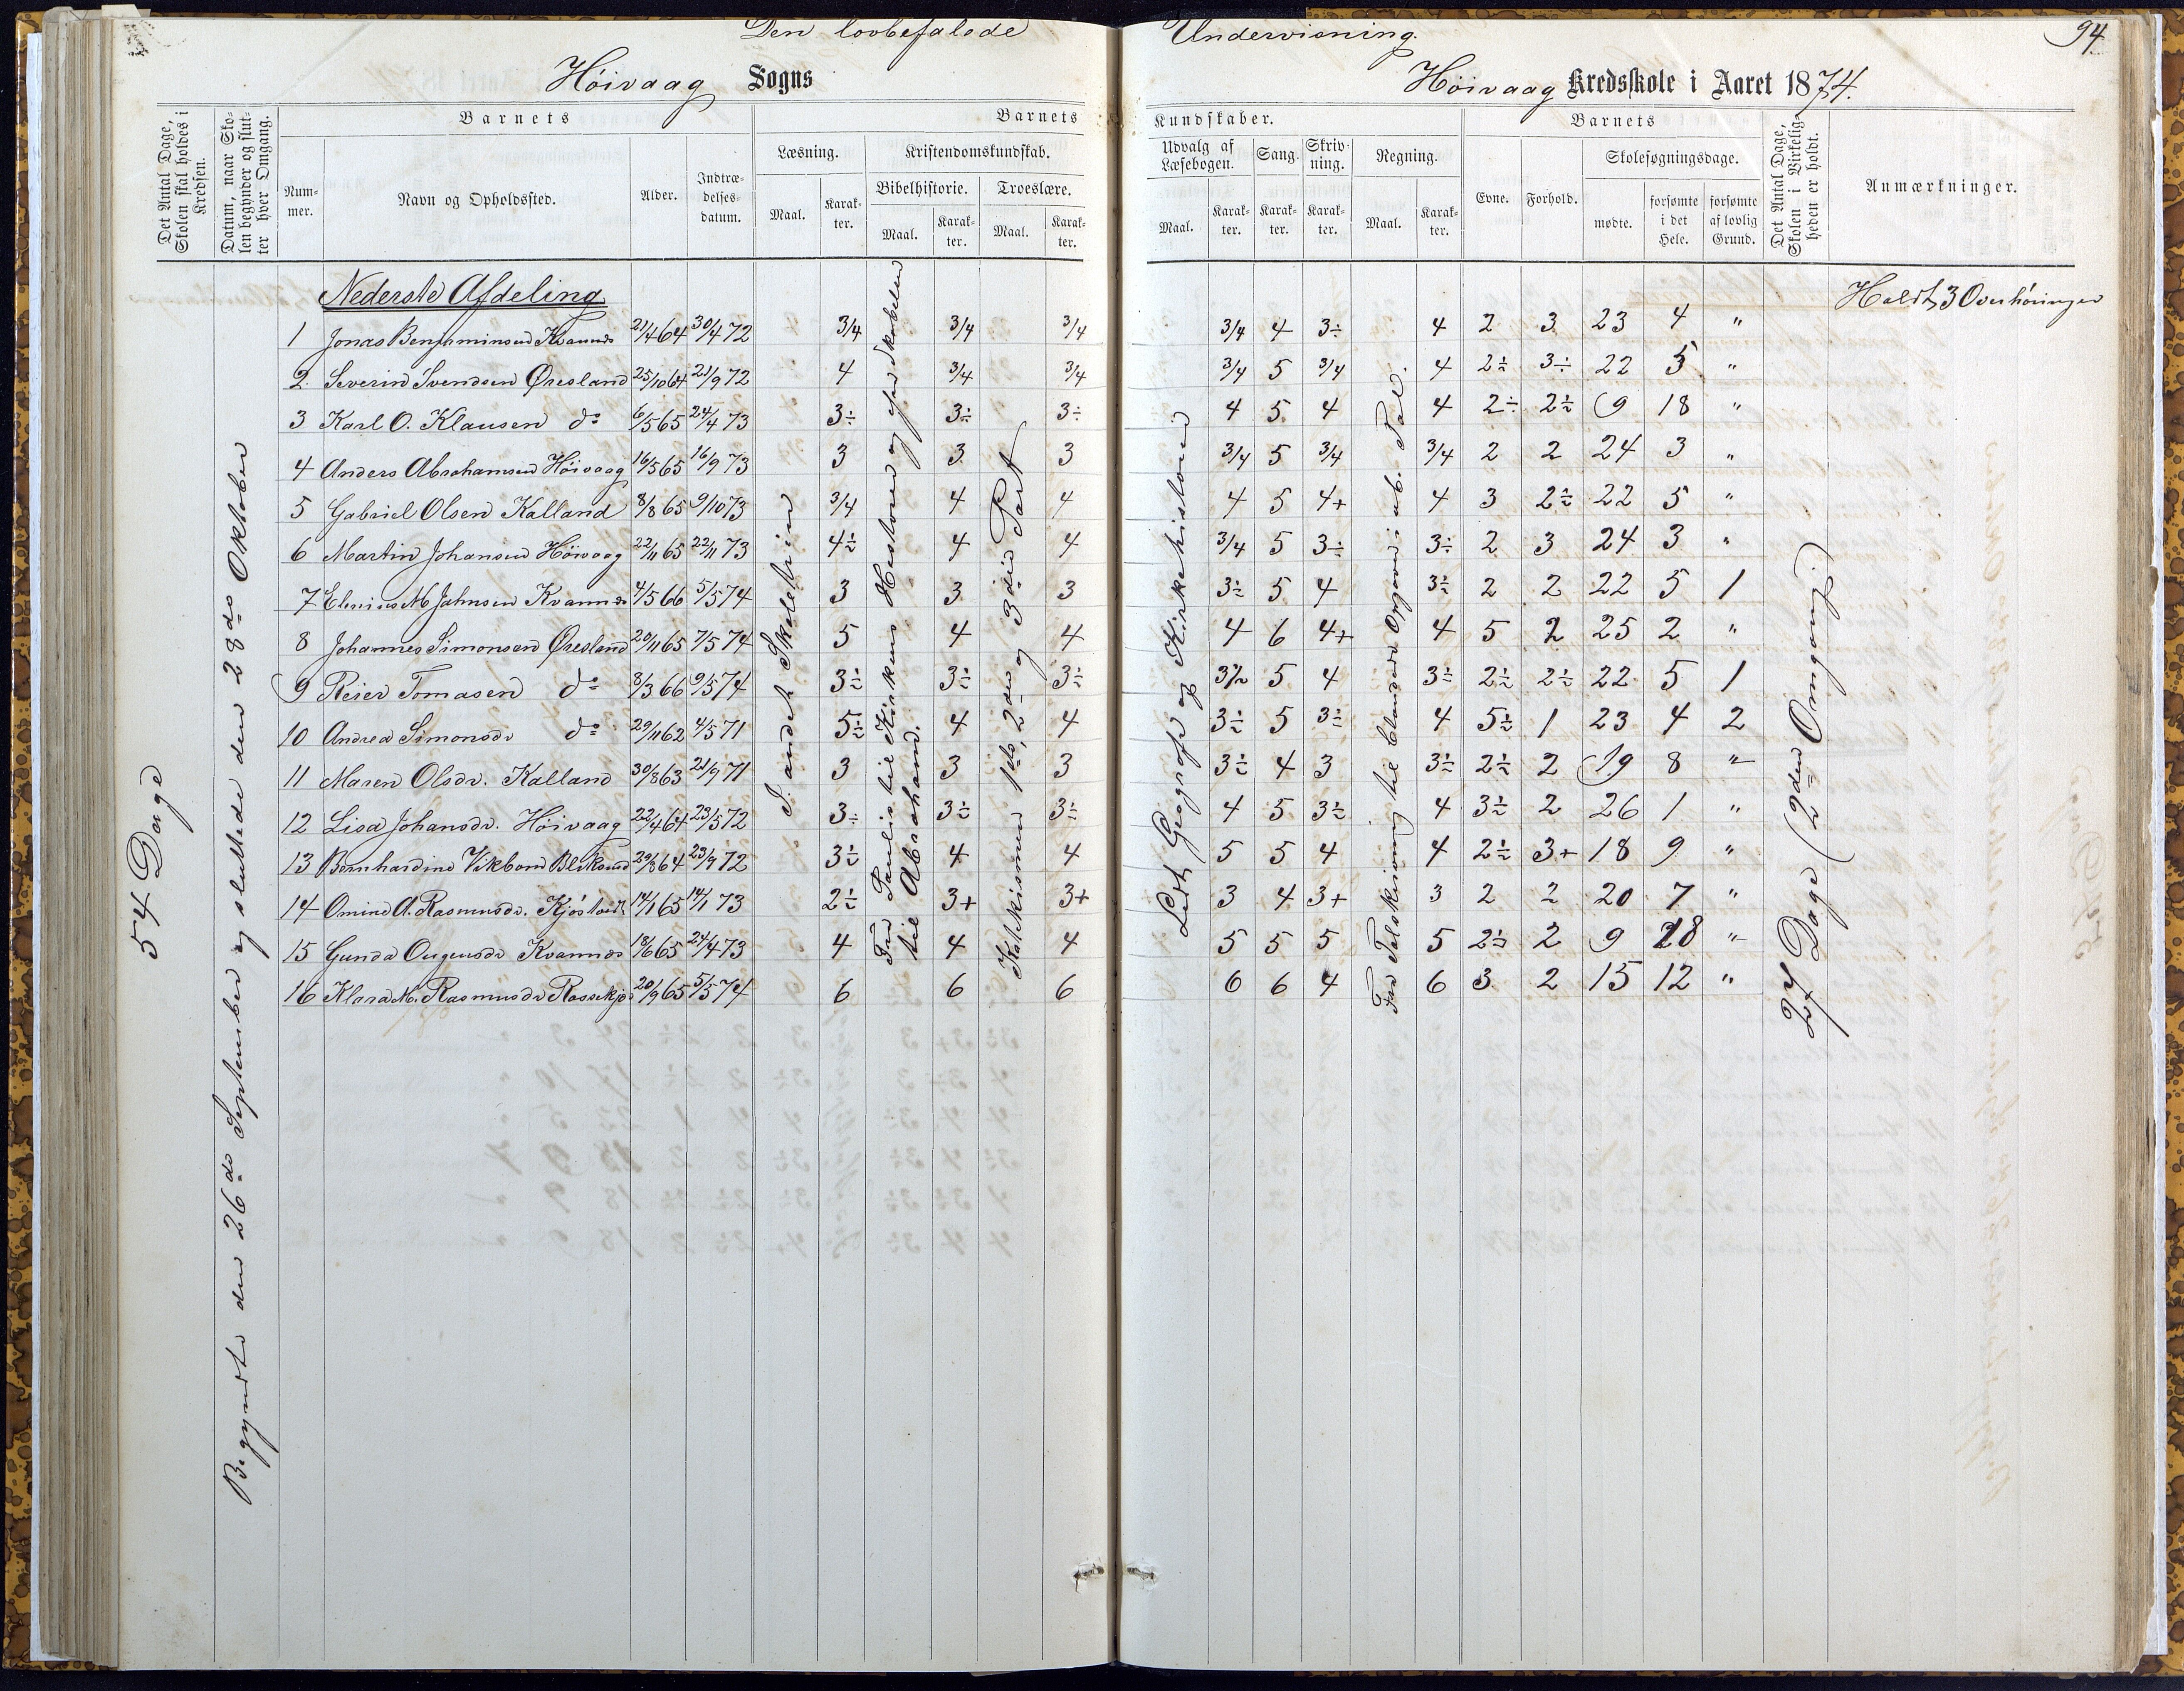 Den lovbefalede Undervisning.
94
Höivaag Sogns Höivaag Kredsskole i Aaret 1874.
Det Antal Dage, Skolen skal holdes i Kredsen.
Datum, naar Skolen begynder og slutter hver Omgang.
Barnets
Barnets Kundskaber.
Barnets
Det Antal Dage, Skolen i Virkeligheden er holdt.
Anmærkninger.
Nummer.
Navn og Opholdssted.
Alder.
Indtrædelsesdatum.
Læsning.
Kristendomskundskab.
Bibelhistorie.
Troeslære.
Udvalg af Læsebogen.
Sang.
Skrivning.
Regning.
Evne.
Forhold.
Skolesøgningsdage.
Maal. Karakter. Maal. Karakter. Maal. Karakter. Maal. Karakter. Karakter. Karakter. Maal. Karakter.
mødte. forsømte i det Hele. forsømte af lovlig Grund.
Nederste Afdeling
Holdt 3 Overhöringer
1 Jonas Benjaminsen Kvannes 21/4 64 30/4 72 3/4 3/4 3/4 3/4 4 3÷ 4 2 3 23 4 "
2. Severin Svendsen Øresland 25/10 64 21/9 72 4 3/4 3/4 3/4 5 3/4 4 2÷ 3÷ 22 5 "
3 Karl O. Klausen do 6/5 65 24/4 73 3÷ 3÷ 3÷ 4 5 4 4 2÷ 2÷ 9 18 "
4 Anders Abrahamsen Höivaag 16/5 65 16/9 73 3 3 3 3/4 5 3/4 3/4 2 2 24 3 "
5 Gabriel Olsen Kalland 8/8 65 9/10 73 3/4 4 4 4 5 4+ 4 3 2÷ 22 5 "
6 Martin Johansen Höivaag 22/11 65 22/11 73 4÷ 4 4 3/4 5 3÷ 3÷ 2 3 24 3 "
7 M Jahnsen Kvannes 4/5 66 5/5 74 3 3 3 3÷ 5 4 3÷ 2 2 22 5 1
8 Johannes Simonsen Øresland 20/11 65 7/5 74 5 4 4 4 6 4+ 4 5 2 25 2 "
9 Reier Tomasen do 8/3 66 9/5 74 3÷ 3÷ 3÷ 3÷ 5 4 3÷ 2÷ 2÷ 22 5 1
10 Andrea Simonsdr do 29/11 62 4/5 71 5÷ 4 4 3÷ 5 3÷ 4 5÷ 1 23 4 2
11 Maren Olsdr. Kalland 30/8 63 21/9 71 3 3 3 3÷ 4 3 3÷ 2÷ 2 19 8 "
12 Lisa Johansdr. Höivaag 22/4 64 23/5 72 3÷ 3÷ 3÷ 4 5 3÷ 4 3÷ 2 26 1 "
13 Bernhardine Vikbom Bliksund 29/8 64 23/9 72 3÷ 4 4 5 5 4 4 2÷ 3+ 18 9 "
14 Omine A. Rasmusdr. Kjöstvedt 14/1 65 14/1 73 2÷ 3+ 3+ 3 4 3+ 3 2 2 20 7 "
15 Gunda Ougensdr Kvannes 18/6 65 24/4 73 4 4 4 5 5 5 5 2÷ 2 9 18 "
16 Klara M. Rasmusdr 20/9 65 5/5 74 6 6 6 6 6 4 6 3 2 15 12 "
54 Dage
Begyndte den 26de September og sluttede den 28de Oktober
I andet Skoletrin
Fra Paulis til Kirkens Historie og fra Skabelsen til Abraham.
Katekismen 1ste, 2den og 3die Part
Lidt Geografi og Kirkehistorie
Fra Talskrivning til blandede Opgaver i ub. Tal.
27 Dage (2den Omgang.)